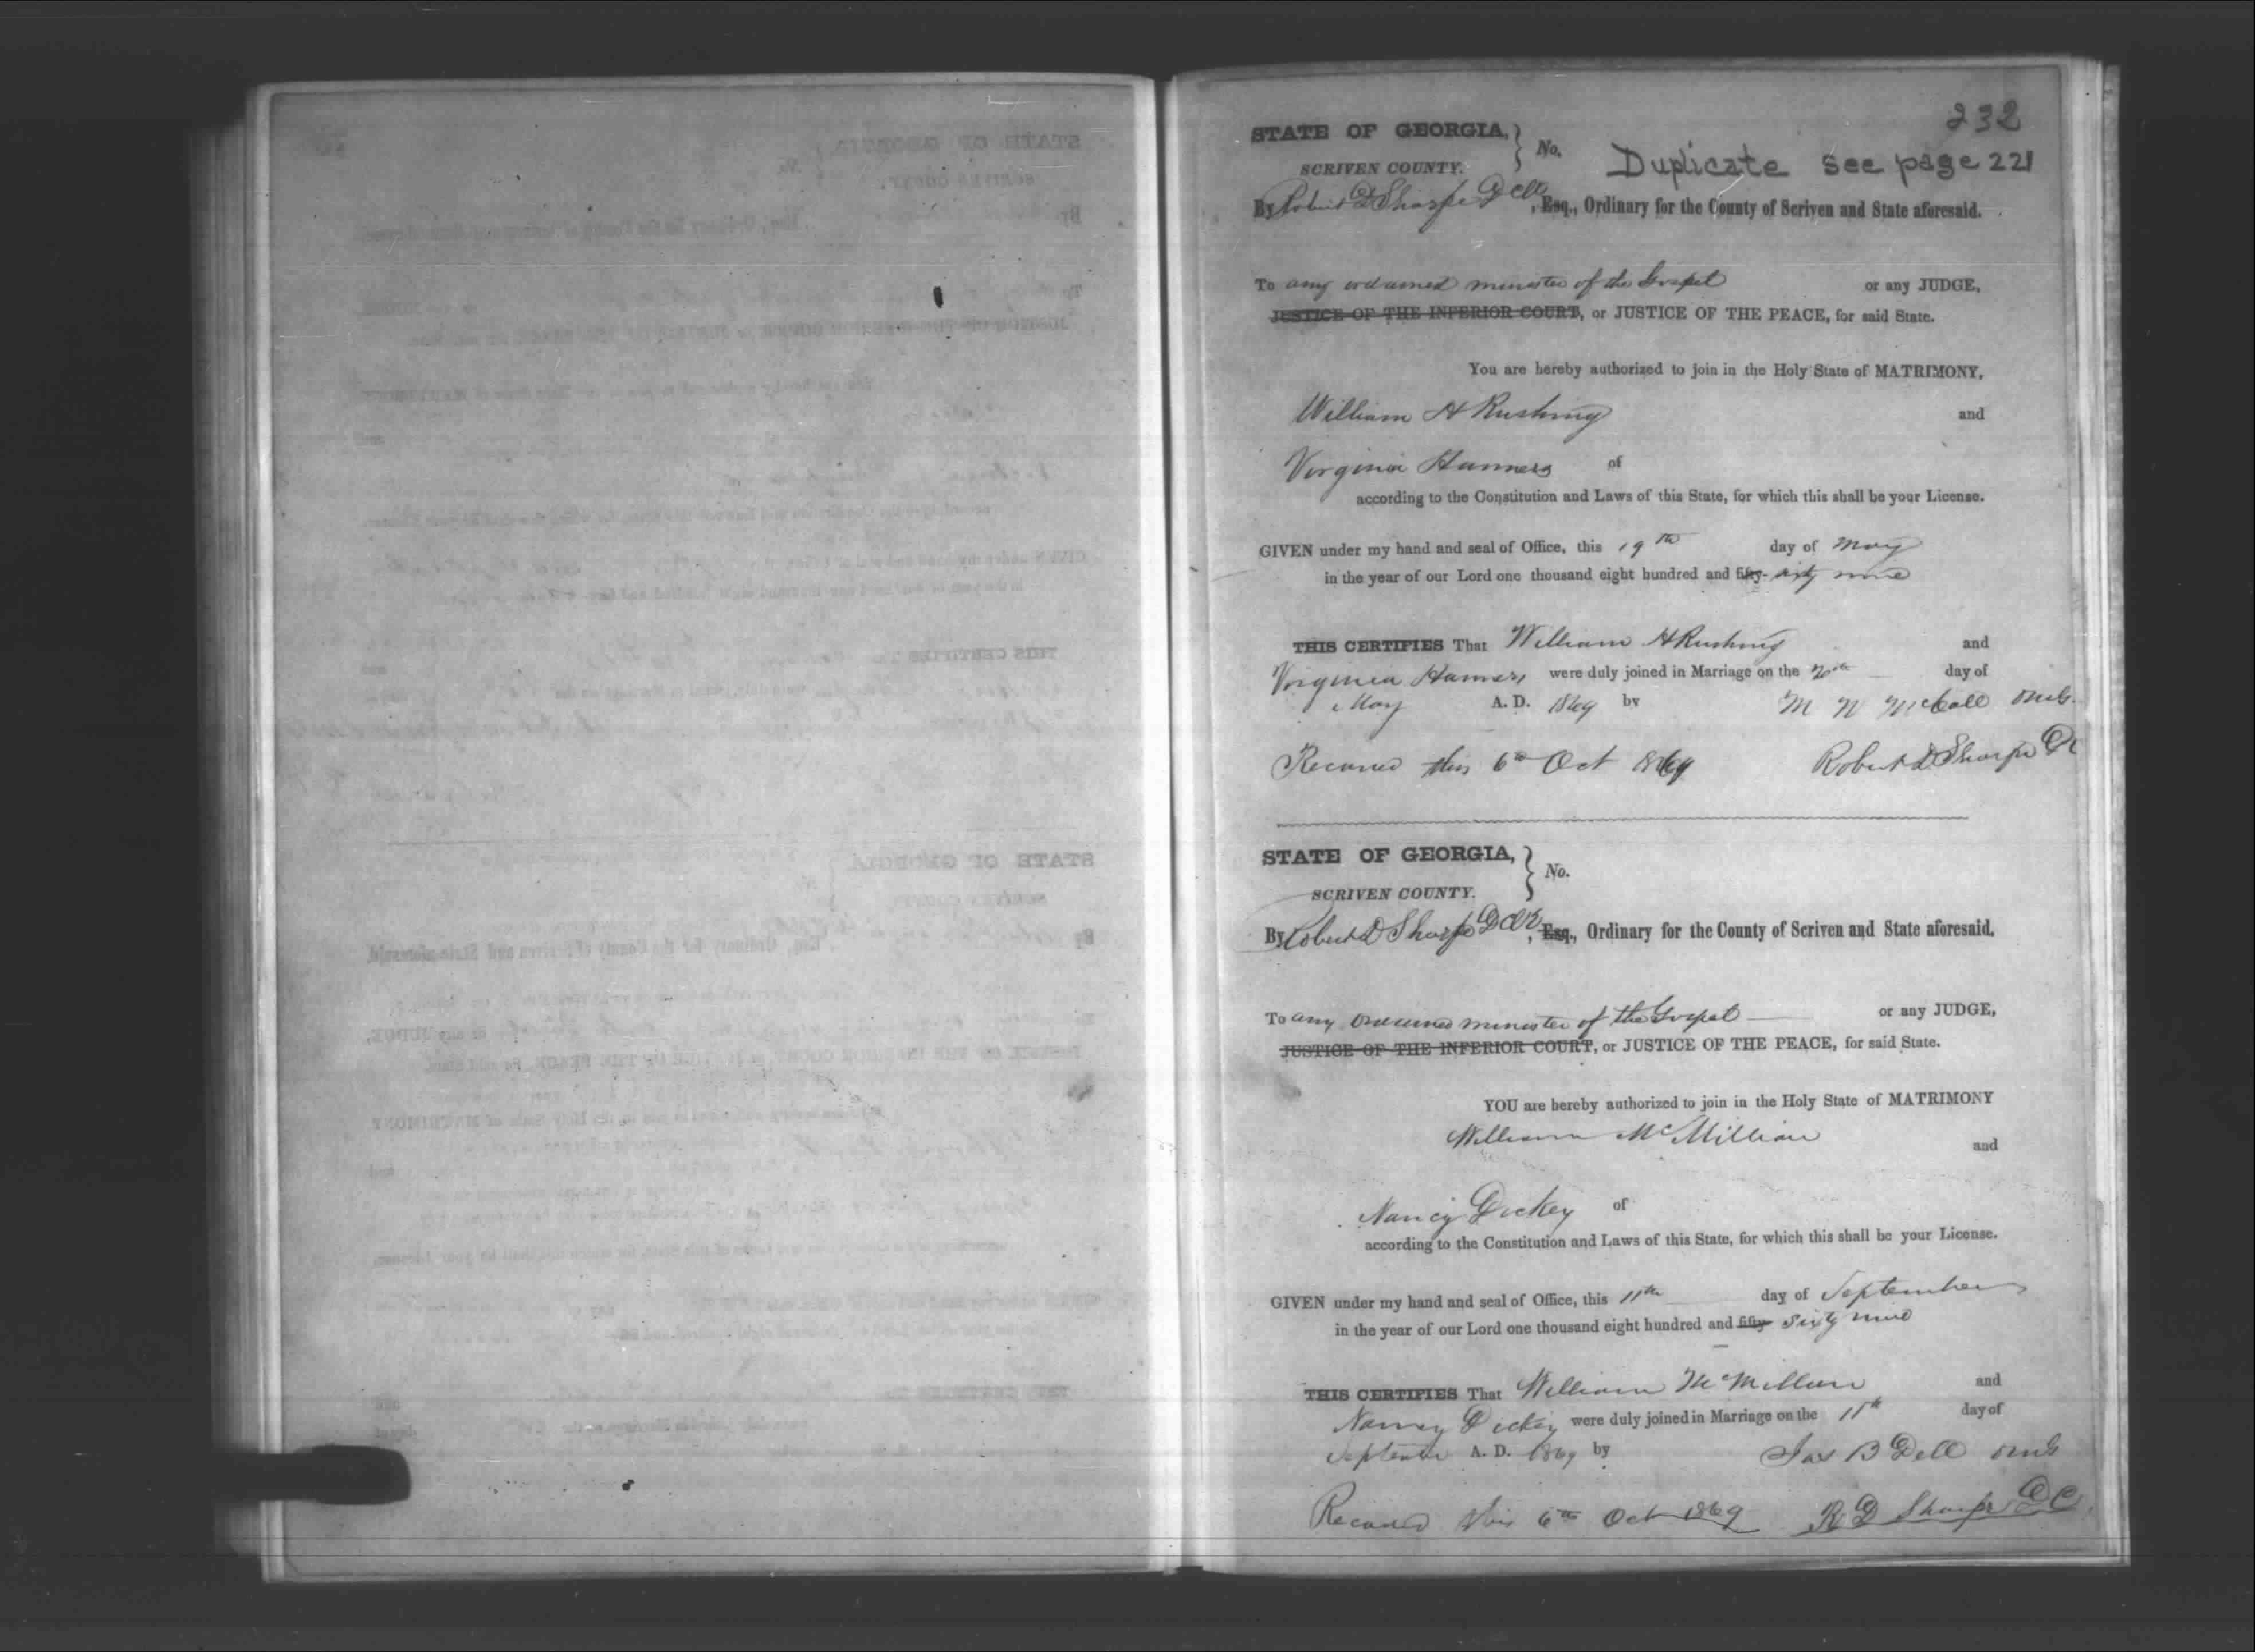 232
STATE OF GEORGIA, } No.
Duplicate see page 221
SCRIVEN COUNTY.
By Robert D Sharpe D Clk, Esq., Ordinary for the County of Scriven and State aforesaid.
To any ordained minister of the Gospel or any JUDGE,
JUSTICE OF THE INFERIOR COURT, or JUSTICE OF THE PEACE, for said State.
You are hereby authorized to join in the Holy State of MATRIMONY,
William H Rushing and
Virginia Hanners of
according to the Constitution and Laws of this State, for which this shall be your License.
GIVEN under my hand and seal of Office, this 19th day of May
in the year of our Lord one thousand eight hundred and fifty- sixty nine
THIS CERTIFIES That William H Rushing and
Virginia Hanners were duly joined in Marriage on the 20th day of
May A. D. 1869 by M N McCall OMG.
Recorded this 6th Oct 1869 Robert D Sharpe DC
STATE OF GEORGIA, } No.
SCRIVEN COUNTY.
By Robert D Sharpe D Clk, Esq., Ordinary for the County of Scriven and State aforesaid.
To any Ordained minister of the Gospel or any JUDGE,
JUSTICE OF THE INFERIOR COURT, or JUSTICE OF THE PEACE, for said State.
YOU are hereby authorized to join in the Holy State of MATRIMONY
William McMillian and
Nancy Dickey of
according to the Constitution and Laws of this State, for which this shall be your License.
GIVEN under my hand and seal of Office, this 11th day of September
in the year of our Lord one thousand eight hundred and fifty- Sixty nine
THIS CERTIFIES That William McMillian and
Nancy Dickey were duly joined in Marriage on the 11th day of
September A. D. 1869 by Jas B Dell OMG
Recorded this 6th Oct 1869 R D Sharpe DC